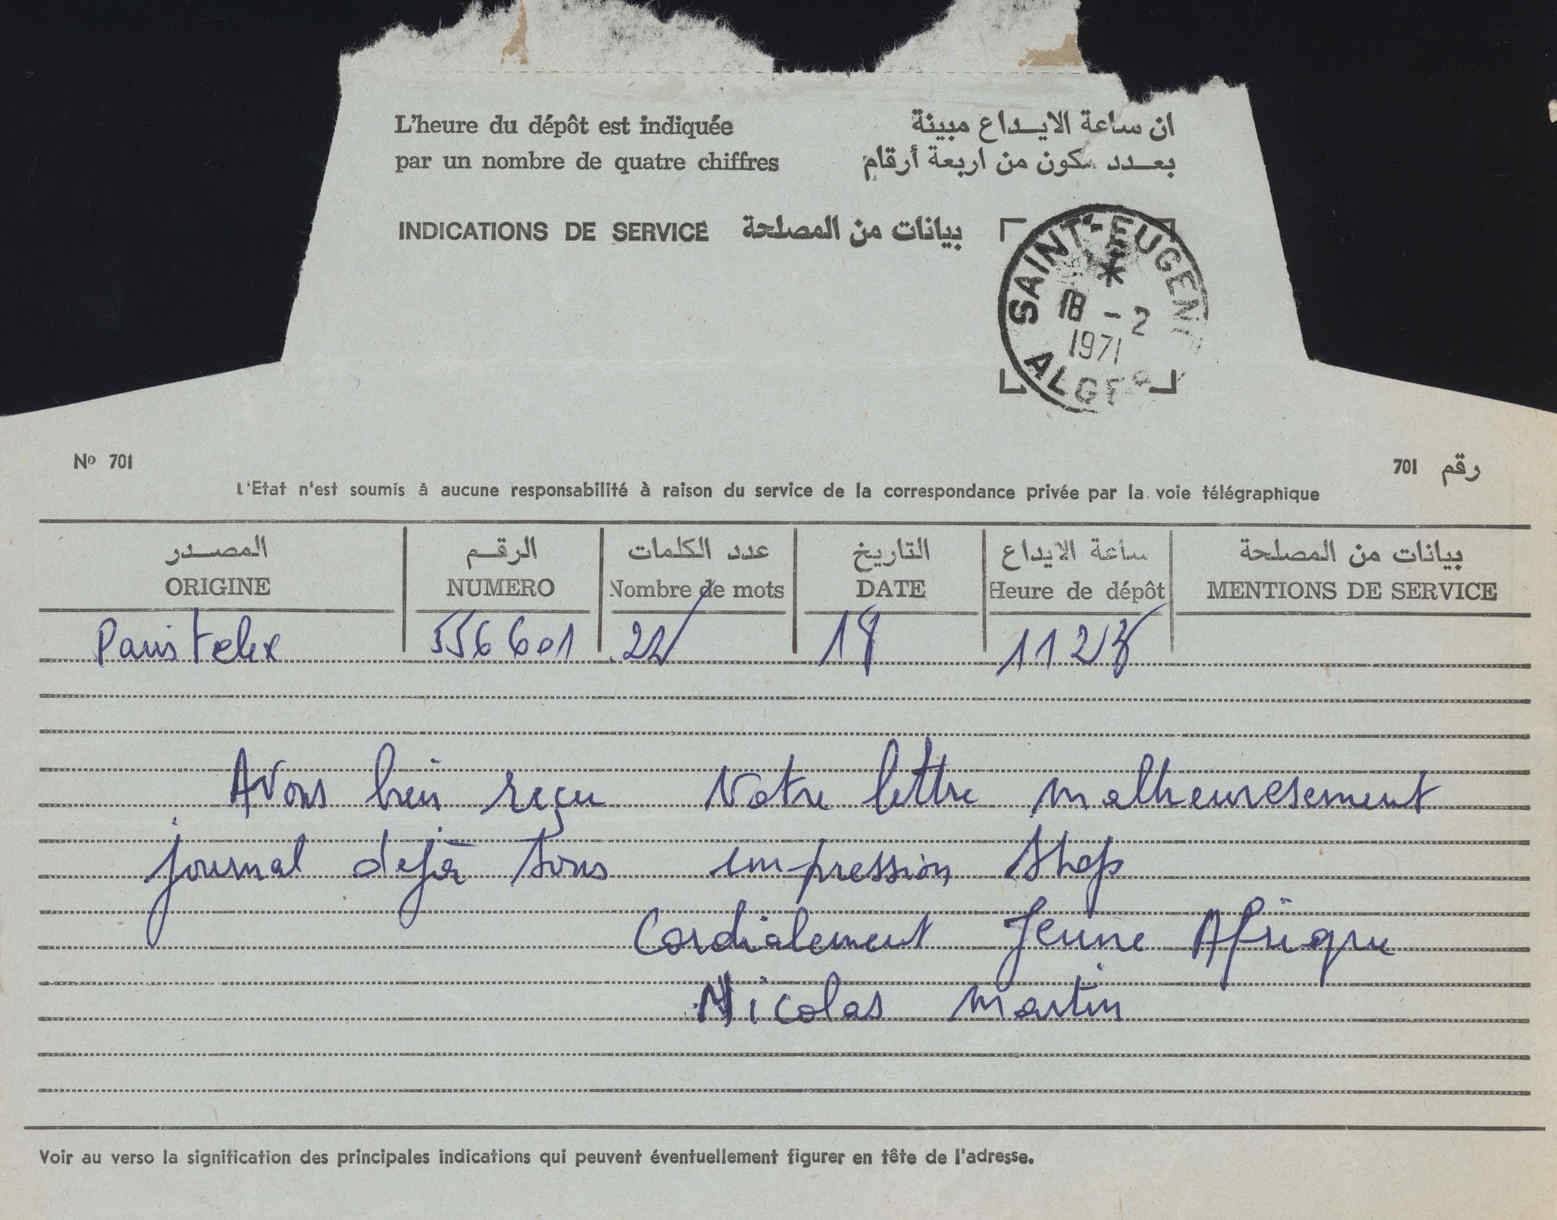 L'heure du dépôt est indiquée
par un nombre de quatre chiffres
ان ساعة الايداع مبينة
بعدد سكون من اربعة أرقام
INDICATIONS DE SERVICE بيانات من المصلحة
SAINT-EUGENE
18 - 2
1971
ALGER
Nº 701
701 رقم
L'Etat n'est soumis à aucune responsabilité à raison du service de la correspondance privée par la voie télégraphique
المصدر الرقم عدد الكلمات التاريخ ساعة الايداع بيانات من المصلحة
ORIGINE NUMERO Nombre de mots DATE Heure de dépôt MENTIONS DE SERVICE
Paris telex 556601 22/ 18
Avons bien reçu Votre lettre malheuresement
journal dejà sous impression Stop
Cordialement Jeune Afrique
Nicolas Martin
Voir au verso la signification des principales indications qui peuvent éventuellement figurer en tête de l'adresse.